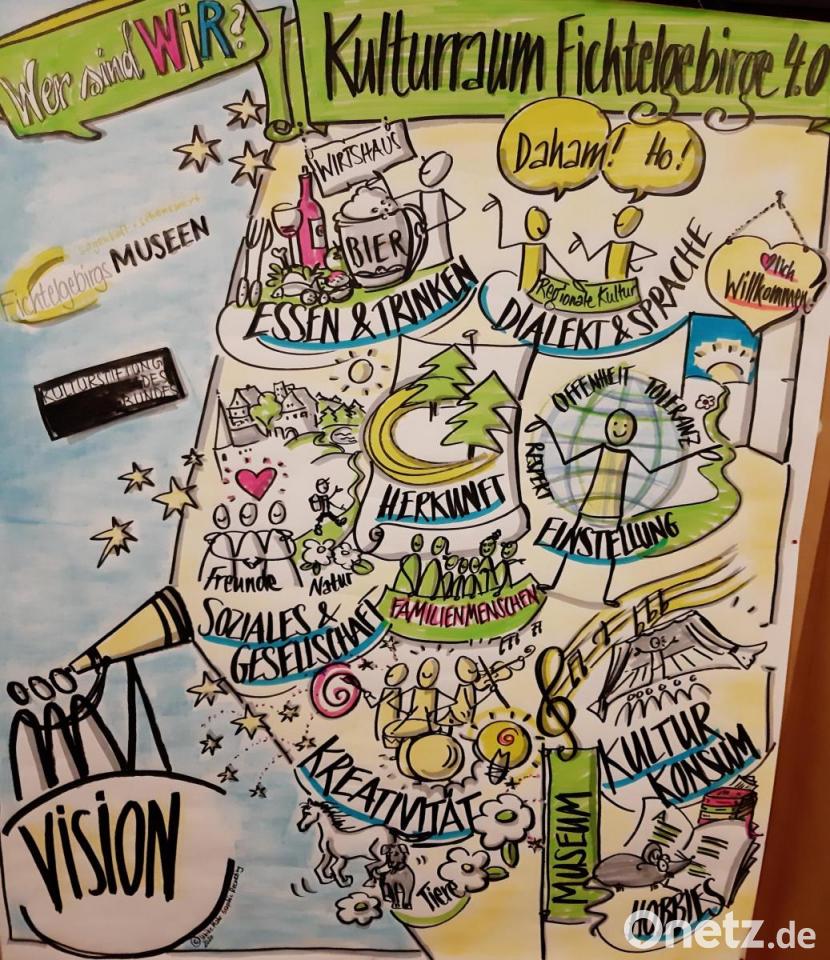 Wer sind WiR?
Kulturraum Fichtelgebirge 4.0
Daham!
Ho!
WIRTSHAUS
BIER
ESSEN & TRINKEN
Regionale Kultur
DIALEKT & SPRACHE
lich
Willkommen!
sagenhaft + sehenswert
Fichtelgebirgs MUSEEN
KULTURSTIFTUNG
DES
BUNDES
OFFENHEIT TOLERANZ
RESPEKT
EINSTELLUNG
HERKUNFT
Freunde
Natur
SOZIALES &
GESELLSCHAFT
FAMILIENMENSCHEN
KREATIVITÄT
KULTUR
KONSUM
VISION
Tiere
MUSEUM
HOBBIES
Onetz.de